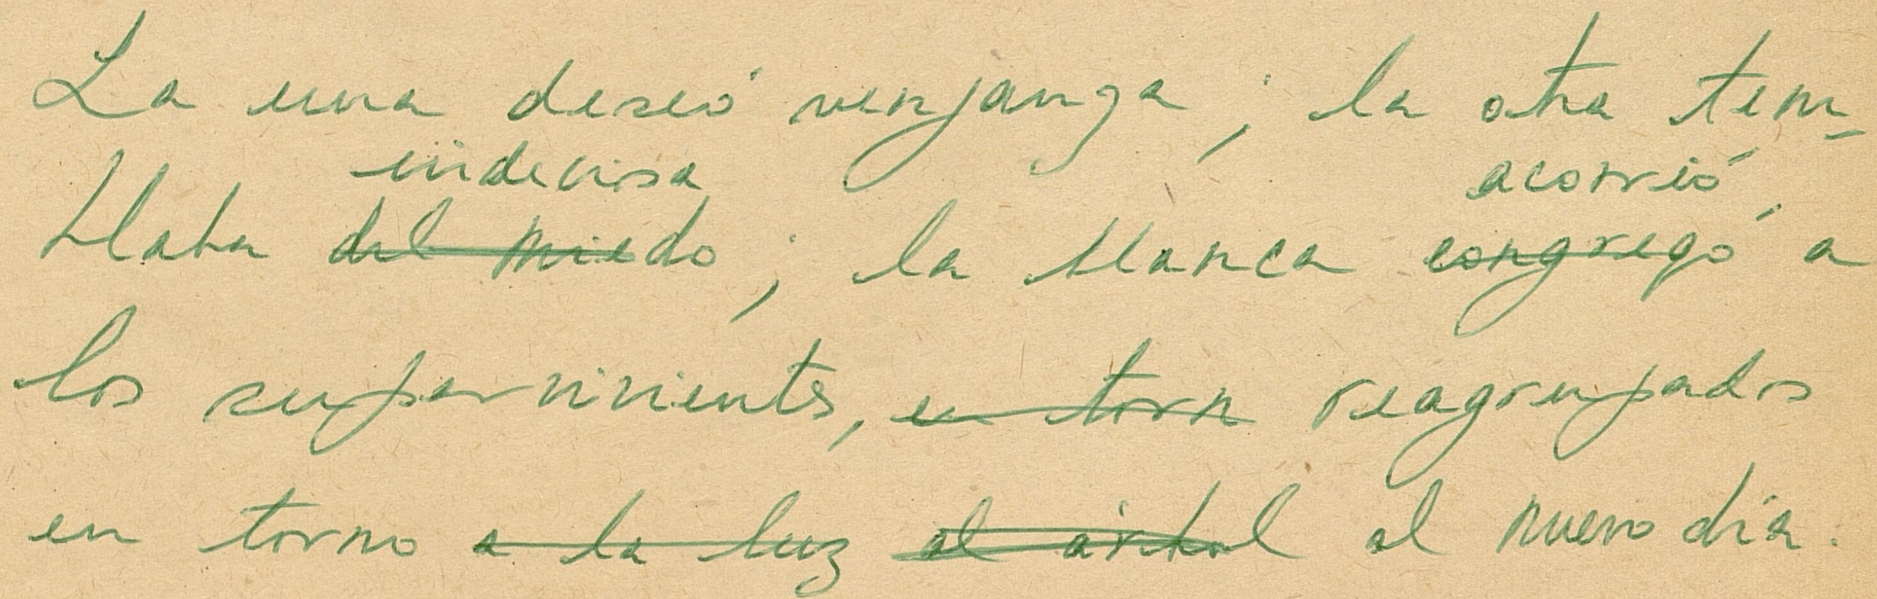 La una deseó venganza; la otra tem-
indecisa acorrió
blaba del miedo; la blanca congregó a
los supervivientes, en torn reagrupados
en torno a la luz al árbol al nuevo día.